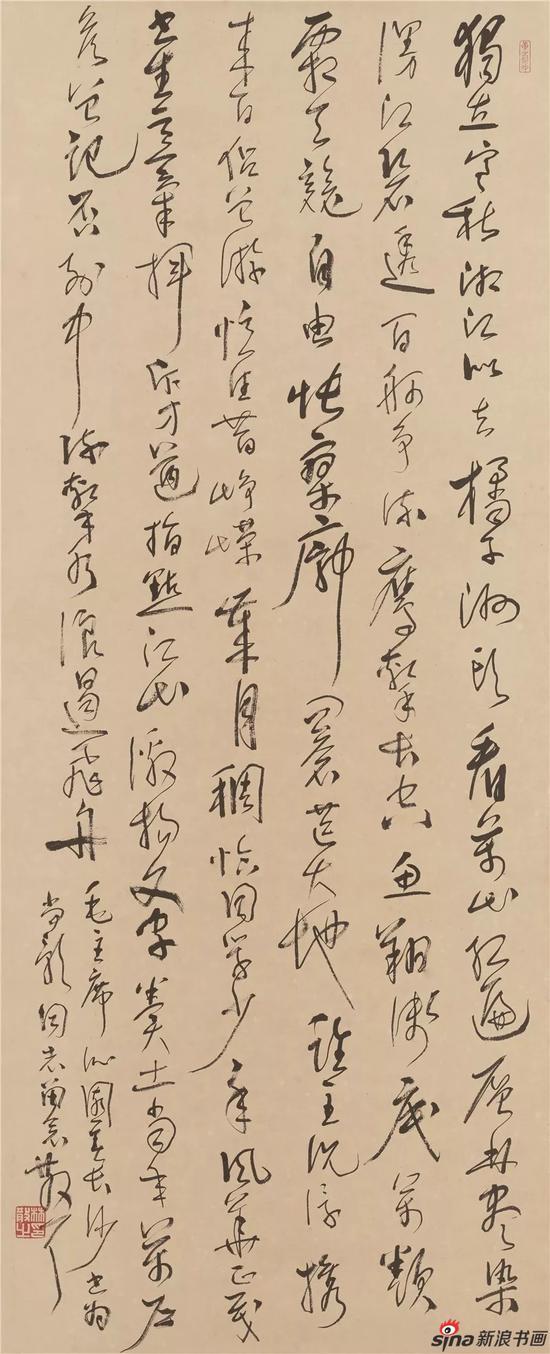 獨立寒秋湘江北去橘子洲頭看萬山紅遍層林盡染
漫江碧透百舸争流鷹擊長空魚翔淺底萬類
霜天競自由悵寥廓問蒼茫大地誰主沉浮攜
來百侣曾游憶往昔崢嶸歲月稠恰同學少年風華正茂
書生意氣揮斥方遒指點江山激揚文字糞土當年萬戶
侯曾記否到中流擊水浪遏飛舟
毛主席沁園春長沙書為
同志留念散耳
sina新浪书画